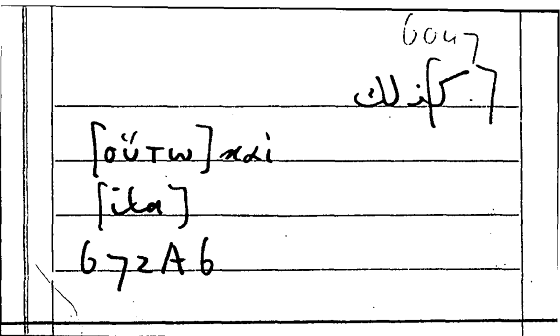 6047
[ك]ذلك
[οὕτω] καὶ
[ita]
672A6